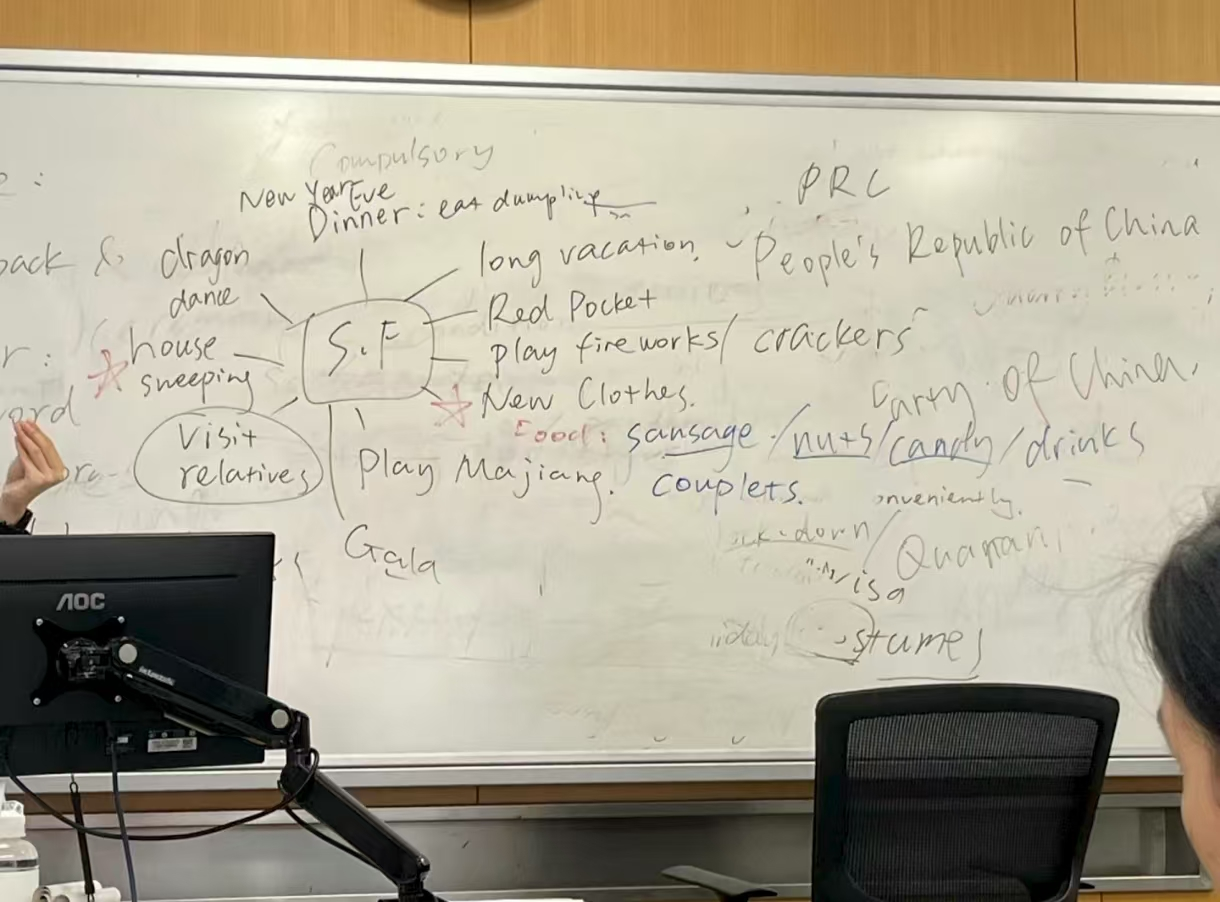 Compulsory
New Year Eve
Dinner: eat dumpling
PRC
People's Republic of China
back &
dragon
dance
long vacation.
Red Pocket
play fireworks/ crackers
New Clothes.
S.F
house
sweeping
Visit
relatives
Party of China.
Food: sansage / nuts / candy / drinks
Play Majiang.
couplets.
Gala
onveniently.
Quaran
stumes
AOC